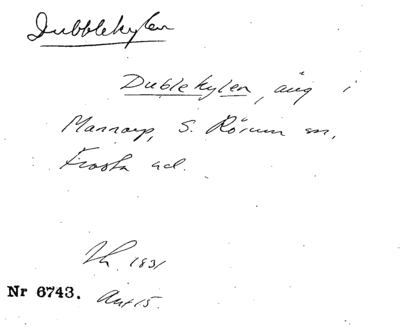 Dubblekylen
Dublekylen, äng i
Mannarp, S. Rörum sn,
Frosta hd.
1831
Nr 6743.